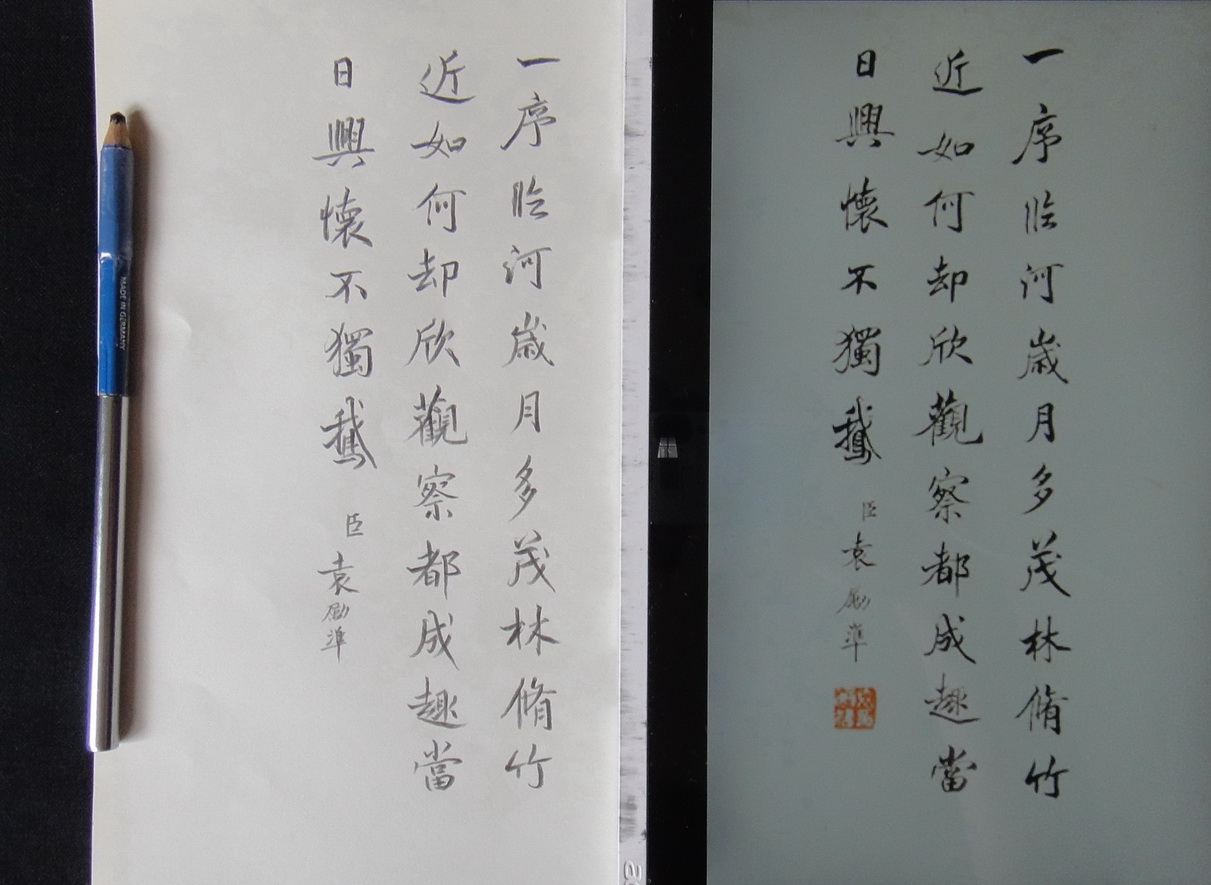 一序临河歲月多茂林脩竹
近如何却欣觀察都成趣當
日興懷不獨鵝
臣袁励準
MADE IN GERMANY
一序临河歲月多茂林脩竹
近如何却欣觀察都成趣當
日興懷不獨鵝
臣袁励準